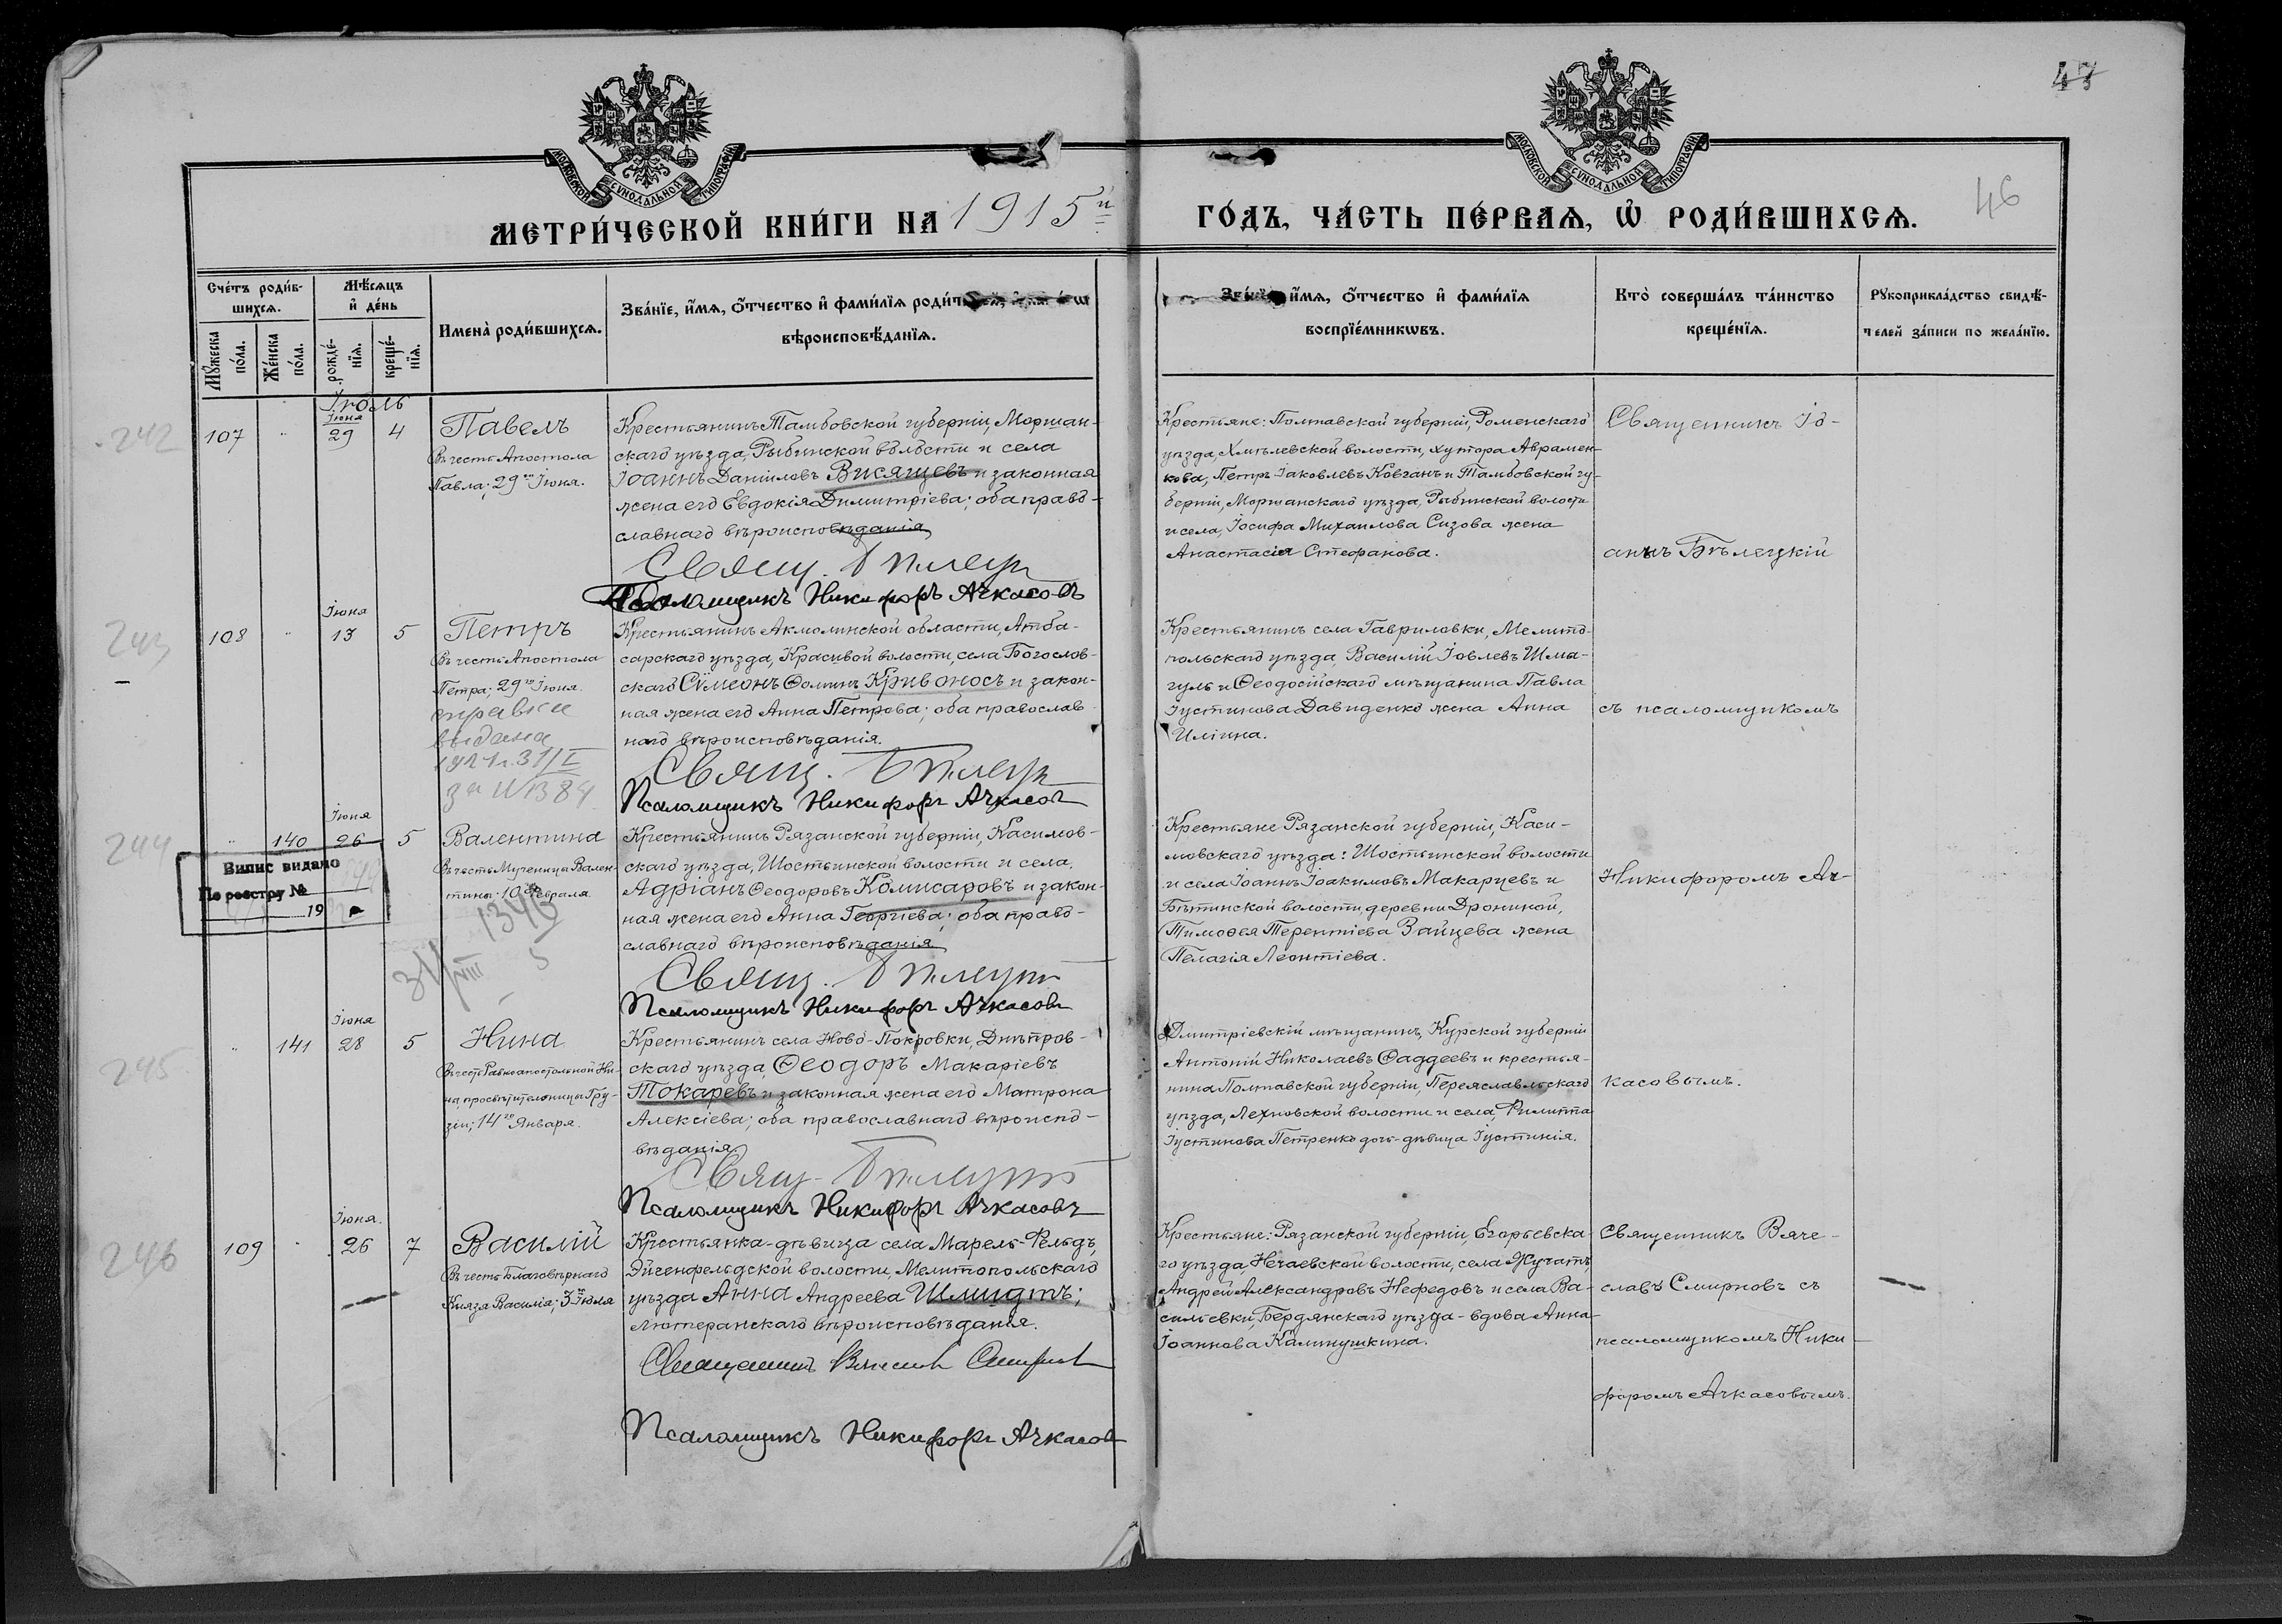 47
46
МОСКОВСКОЙ СѴНОДАЛЬНОЙ ТИПОГРАФІИ
МОСКОВСКОЙ СѴНОДАЛЬНОЙ ТИПОГРАФІИ
МЕТРИ́ЧЕСКОЙ КНИ́ГИ НА 1915й
ГО́ДЪ, ЧА́СТЬ ПЕ́РВАѦ, Ѡ҆ РОДИ́ВШИХСѦ.
Сче́тъ роди́в-
шихсѧ.
Мꙋ́жеска по́ла.
Же́нска по́ла.
Мѣ́сѧцъ
и҆ де́нь
рожде́-
нїѧ.
креще́-
нїѧ.
Имена̀ роди́вшихсѧ.
Зва́нїе, и҆́мѧ, ѻ҆́тчество и҆ фами́лїѧ
вѣроисповѣ́данїѧ.
и҆́мѧ, ѻ҆́тчество и҆ фами́лїѧ
воспрїе́мникѡвъ.
Кто̀ соверша́лъ та́инство
креще́нїѧ.
Рꙋкоприкла́дство свидѣ́-
телей за́писи по жела́нїю.
Іюль
242
107
"
Іюня
29
4
Павелъ
Въ честь Апостола
Павла; 29го Іюня.
Крестьянинъ Тамбовской губерніи, Моршан-
скаго уѣзда, Рыбинской волости и села
Іоаннъ Даніиловъ Висягцевъ и законная
жена его Евдокія Димитріева; оба право-
славнаго вѣроисповѣданія
Свящ. Бѣлецк
Псаломщикъ Никифоръ Ачкасовъ
Крестьяне: Полтавской губерніи, Роменскаго
уѣзда, Хмѣлевской волости, хутора Аврамен-
кова, Петръ Іаковлевъ Ковганъ и Тамбовской гу-
берніи, Моршанскаго уѣзда, Рыбинской волости
и села, Іосифа Михаилова Сизова жена
Анастасія Стефанова.
Священникъ Іо-
аннъ Бѣлецкій
243
108
"
Іюня
13
5
Петръ
Въ честь Апостола
Петра; 29го Іюня.
справка
выдана
31/I
Крестьянинъ Акмолинской области, Атба-
сарскаго уѣзда, Красивой волости, села Богослов-
скаго Сѵмеонъ Ѳоминъ Кривоносъ и закон-
ная жена его Анна Петрова; оба православ
наго вѣроисповѣданія.
Свящ. Бѣлецк
Псаломщикъ Никифоръ Ачкасов
Крестьянинъ села Гавриловки, Мелито-
польскаго уѣзда Василій Іовлевъ Шма-
гулъ и Ѳеодосійскаго мѣщанина Павла
Іустинова Давиденко жена Анна
Илі́ина.
съ псаломщикомъ
244
"
140
Іюня
26
5
Валентина
Въ честь Мученицы Вален-
тины; 10 февраля.
1346
31/VIII
5
Випис видано
По реестру №
19
Крестьянинъ Рязанской губерніи, Касимов-
скаго уѣзда, Шостьинской волости и села.
Адріанъ Ѳеодоровъ Комисаровъ и закон-
ная жена его Анна Георгіева; оба право-
славнаго вѣроисповѣданія
Свящ. Бѣлецкі
Псаломщикъ Никифоръ Ачкасовъ
Крестьяне Рязанской губерніи, Каси-
мовскаго уѣзда: Шостьинской волости
и села Іоаннъ Іоакимовъ Макарцевъ и
Бѣтинской волости, деревни Дрониной,
Тимофея Терентіева Зайцева жена
Пелагія Леонтіева.
Никифоромъ Ач-
245
"
141
Іюня
28
5
Нина
Въ честь Равноапостольной Ни-
на, просвѣтительницы Гру-
зіи; 14го Января.
Крестьянинъ села Ново-Покровки, Днѣпров-
скаго уѣзда, Ѳеодоръ Макаріевъ
Токаревъ и законная жена его Матрона
Алексіева; оба православнаго вѣроиспо-
вѣданія.
Свящ. Бѣлецкі
Псаломщикъ Никифоръ Ачкасовъ
Дмитріевскій мѣщанинъ, Курской губерніи
Антоній Николаевъ Ѳаддеевъ и крестья-
нина Полтавской губерніи, Переяславльскаго
уѣзда, Лехновской волости и села, Филиппа
Іустинова Петренко дочь-дѣвица Іустинія.
касовымъ.
246
109
"
Іюня.
26
7
Василій
Въ честь Благовѣрнаго
Князя Василія; 3го Іюля
Крестьянка-дѣвица села Марель-Фельдъ,
Эйгенфельдской волости, Мелитопольскаго
уѣзда Анна Андреева Шмидтъ;
лютеранскаго вѣроисповѣданія.
Священникъ Вячеслав Смирнов
Псаломщикъ Никифоръ Ачкасов
Крестьяне: Рязанской губерніи, Егорьевска-
го уѣзда, Нечаевской волости, села Жучатъ,
Андрей Александровъ Нефедовъ и села Ва-
сильевки, Бердянскаго уѣзда - вдова Анна
Іоаннова Калинушкина.
Священникъ Вяче-
славъ Смирновъ съ
псаломщикомъ Ники-
форомъ Ачкасовымъ.